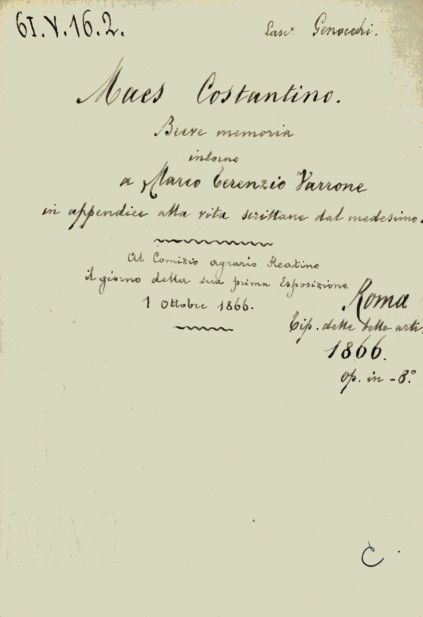 61.V.16.2.
Lasc. Genocchi.
Maes Costantino.
Breve memoria
intorno
a Marco Terenzio Varrone
in appendice alla vita scrittane dal medesimo.
Al Comizio agrario Reatino
il giorno della sua prima Esposizione
1 Ottobre 1866.
Roma
Tip. delle belle arti,
1866.
op. in -8.°
C.